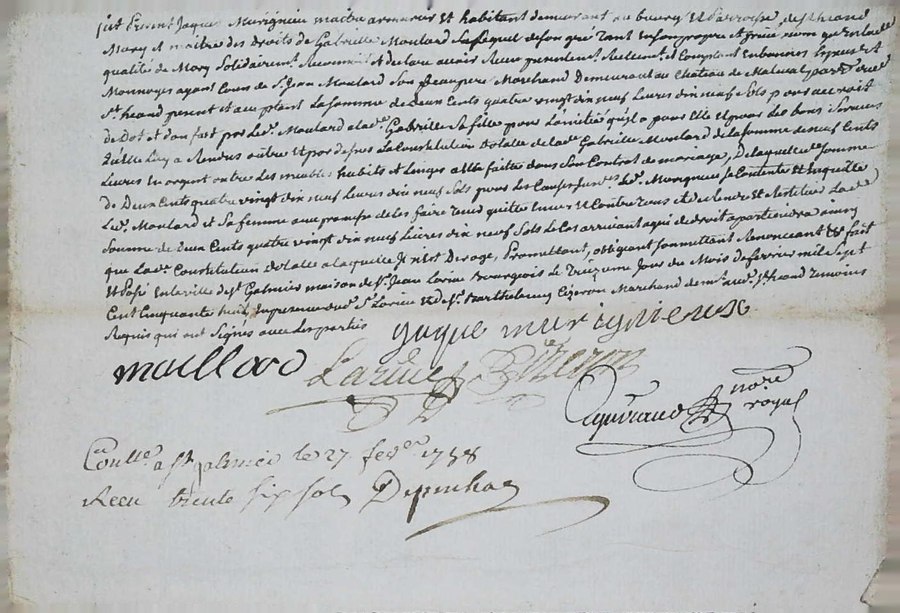 fut Present Jaques Murignieu maitre armureur et habitant demeurant au bourg et Parroisse de St heand
Mary et maitre des droits de Gabrielle Moulard Lequel de son gré tant en son propre et privé nom qu'en lade
qualité de Mary Solidairemt. Reconnu et declaré avoir Receu presentemt. Reelemt. et Comptant en bonnes Especes et
Monnoyes ayant Cours de Sr. Jean Moulard Son Beaupere Marchand Demeurant au Château de Malval parroisse dud
St. heand present et acceptant La somme de deux Cents quatre vingt dix neuf Livres dix neuf Sols pour
de Dot et don fait par Led. Moulard a lad. Gabrielle Sa fille pour L'amitié qu'il a pour Elle et pour les bons Services
qu'elle Luy a Rendus outre et par dessus La Constitution dotalle de lade. Gabrielle Moulard de la somme de neuf Cents
Livres en argent outre Les meubles habits et Linges a Elle faitte dans Son Contrat de mariage, De laquelle de. somme
de Deux Cents quatre vingt dix neuf Livres dix neuf Sols pour Les Causes Led. Murigneu se Contente et En quitte
Led. Moulard et Sa femme avec promesse de les faire tenir quitte Envers et Contre tous et de Rendre et Restituer Lade.
Somme de deux Cents quatre vingt dix neuf Livres dix neuf Sols le Cas arrivant a qui de droit apartiendra ainsy
que Lade. Constitution dotalle a laquelle Promettant, obligeant soumettant Renonceant &a fait
et Passé En la ville de St. Galmier maison de Sr. Jean Larive Bourgeois Le Treizeme Jour du Mois de fevrier mil Sept
Cent Cinquante huit, En presence dud. Sr. Larive et de Sr. Barthelemy Cizeron Marchand St. heand temoins
Requis qui ont Signés avec Les parties
jaque murignieux
moullard Larive B Cizeron
nore
royal
Conlle. a St galmier le 27 fevrer 1758
Receu trente six sols